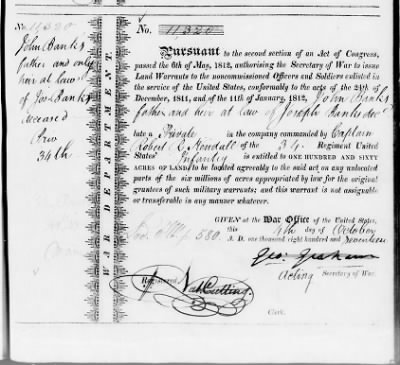 No. 11320
John Banks
father and only
heir at law
of Jos. Banks
deceased
34th
WAR DEPARTMENT.
No. 11320
Pursuant to the second section of an Act of Congress,
passed the 6th of May, 1812, authorising the Secretary of War to issue
Land Warrants to the noncommissioned Officers and Soldiers enlisted in
the service of the United States, conformably to the acts of the 24th of
December, 1811, and of the 11th of January, 1812, John Banks
father and heir at law of Joseph Banks decd
late a Private in the company commanded by Captain
Robert C. Kendall of the 34 Regiment United
States' Infantry is entitled to ONE HUNDRED AND SIXTY
ACRES OF LAND to be located agreeably to the said act on any unlocated
parts of the six millions of acres appropriated by law for the original
grantees of such military warrants; and this warrant is not assignable
or transferable in any manner whatever.
GIVEN at the War Office of the United States,
this 4th day of October
580. A. D. one thousand eight hundred and seventeen
Geo: Graham
Acting Secretary of War.
Registered
Nat. Cutting.
Clerk.